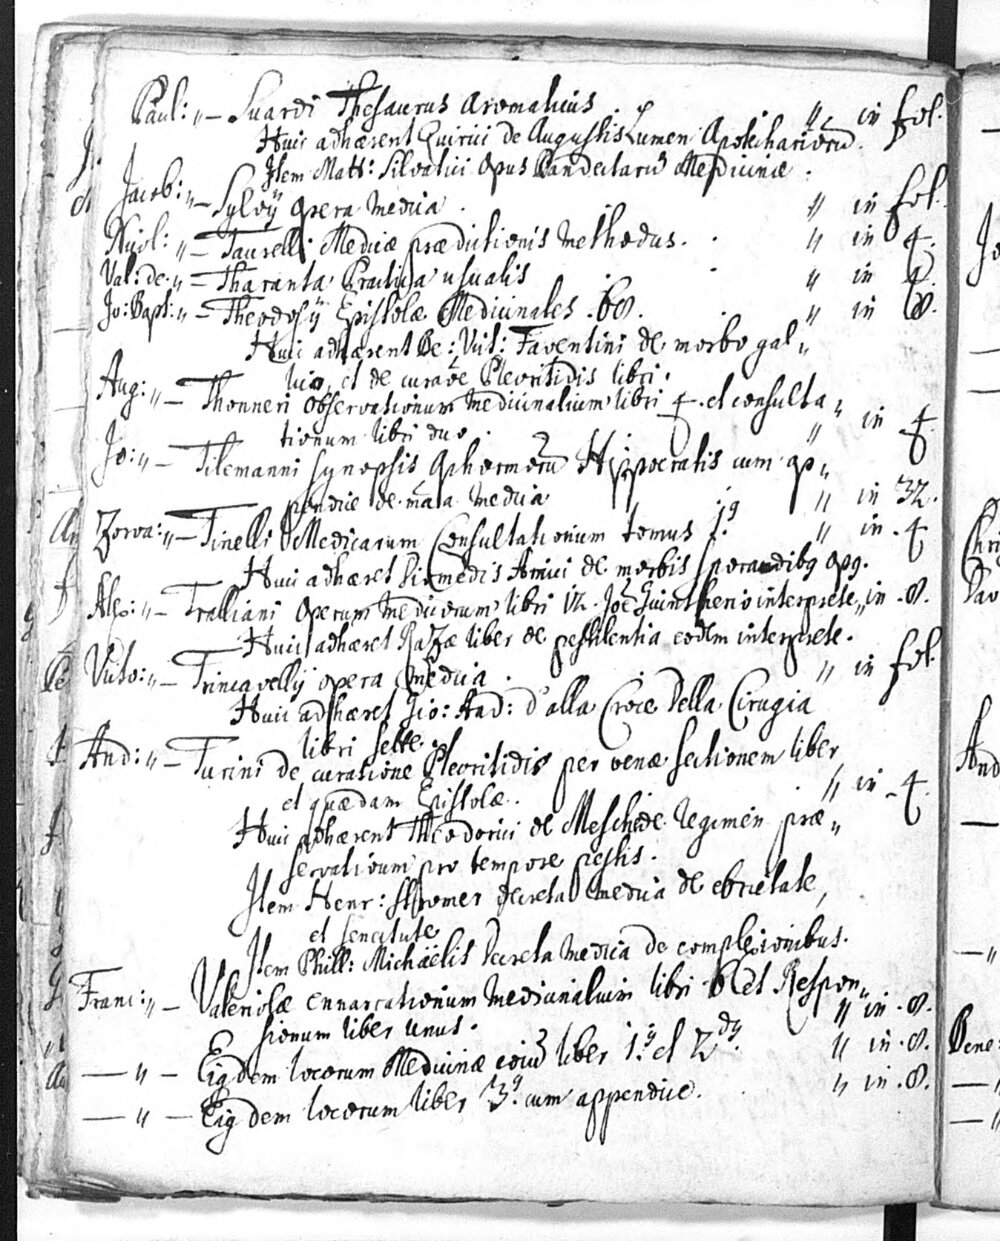 Paul: „ – Suardi Thesaurus aromaticus . „ in fol.
Huic adhærent Quirici de Augustis Lumen Apothecariorũ.
Item Matt: Silvatici opus Pandectarũ Medicinæ .
Jacob: „ – Sylvÿ opera medica . „ in fol.
Nicol: „ – Taurelli Medicæ prædictionis methodus . „ in 4.
Val: de „ – Tharanta Practica usualis „ in 4.
Jo: Bapt: „ – Theodosÿ Epistolæ Medicinales 68. „ in 8.
Huic adhærent Be: Vict: Faventini de morbo gal„
lico, et de curaõe Pleuritidis libri.
Aug: „ – Thonneri observationum medicinalium libri 4. et consulta„
tionum libri duo . „ in 4
Jo: „ – Tilemanni synopsis Aphorismorũ Hippocratis cum ap„
pendice de mãa medica „ in 32.
„ – Tinelli Medicarum Consultationum tomus 1.9 „ in . 4
Huic adhæret Amici de morbis sporadibq opq.
Alex: „ – Tralliani operum medicorum libri 12. Joẽ Guintherio interprete „ in . 8.
Huic adhæret Razæ liber de pestilentia eodem interprete.
Victo: „ – Trincavellÿ opera medica . „ in fol.
Huic adhæret Gio: And: d'alla Croce Della Cirugia
libri sette.
And: „ – Turini de curatione Pleuritidis per venæ sectionem liber,
et quædam Epistolæ. „ in . 4.
Huic adhærent Theodorici de Meschede Regimen præ„
servativum pro tempore pestis.
Item Henr: Stromer decreta medica de ebrietate,
et senectute
Item Phill: Michaëlis Decreta medica de complexionibus.
Franc: „ – Valeriolæ ennarrationum medicinalium libri 6 et Respon„
sionum liber unus. „ in . 8.
— „ – Eiqdem locorum Medicinæ coium liber 1.9 et 2dq. „ in . 8.
— „ – Eiqdem locorum liber 3.9 cum appendice. „ in . 8.